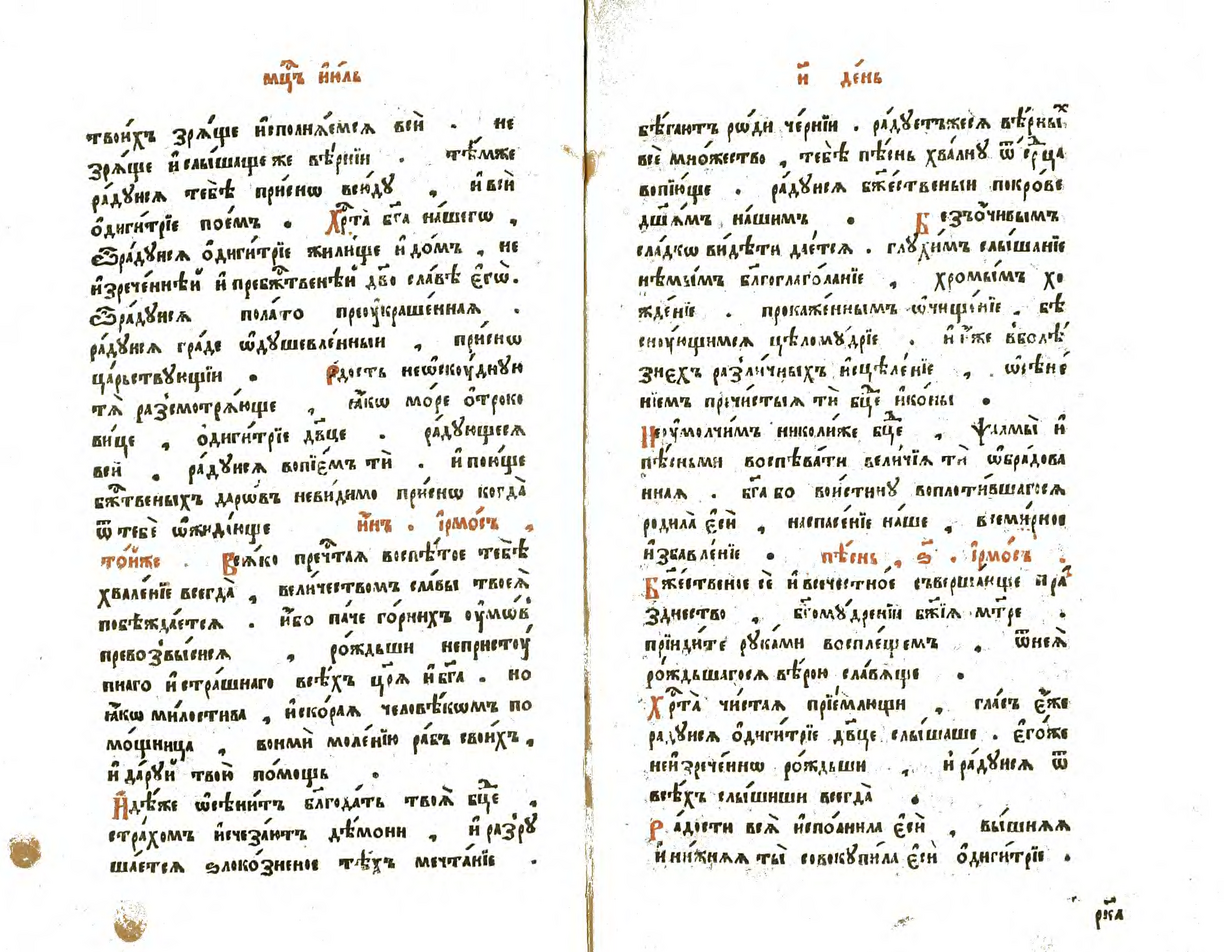 мц҃ъ ию́ль
твои́хъ зря́ще и҆сполня́емся вси̑ . не
зря́ще и҆ слы́шаще же вѣ́рнїи . тѣ́мже
ра́дуися тебѣ̀ при́сно всю́ду , и҆ вси̑
ѻ҆диги́трїе пое́мъ . Хрⷭ҇та̀ бг҃а на́шегѡ ,
Ѿра́дуися ѻ҆диги́трїе жили́ще и҆ до́мъ , не
и҆зрече́ннѣй и҆ пребж҃твенѣй дв҃о сла́вѣ є҆гѡ̀.
Ѿра́дуися пола́то преоу҆кра́шенная .
ра́дуися гра́де ѡ҆душевле́нныи , при́снѡ
ца́рьствующїи . Ра́дость неѡ҆скоу́дную
тѧ̀ разсмотря́юще , ꙗ҆́кѡ мо́ре ѻ҆троко
ви́це , ѻ҆диги́трїе дв҃це . ра́дующеся
вси̑ , ра́дуися вопїе́мъ тѝ . и҆ пою́ще
бж҃твеныхъ даро́въ неви́димо при́снѡ когда̀
ѿ тебѐ ѡ҆жида́юще и҆́нъ . і҆рмо́съ ,
то́йже . Вся́ко пречⷭ҇тая воспѣ́тое тебѣ̀
хвале́нїе всегда̀ , вели́чествомъ сла́вы твоея̀
побѣжда́ется . и҆́бо па́че го́рнихъ оу҆мо́въ
превозвы́сися , ро́ждьши непристоу́
пнаго и҆ стра́шнаго всѣ́хъ цр҃я̀ и҆ бг҃а . но
ꙗ҆́кѡ ми́лостива , и҆ ско́рая человѣ́комъ по
мо́щница , вонмѝ моле́нїю ра́бъ свои́хъ ,
и҆ да́руй твою̀ по́мощь .
И҆дѣ́же ѡ҆сѣни́тъ бл҃года́ть твоя̀ бц҃е ,
стра́хомъ и҆счеза́ютъ де́мони , и҆ разру
ша́ется ѕлоко́зненое тѣ́хъ мечта́нїе .
и҃ де́нь
бѣ́гаютъ ро́ди че́рнїи . ра́дуетъжеся вѣ́рныⷯ
всѐ мно́жество , тебѣ̀ пѣ́снь хва́лну ѿ ср҃ца
вопїю́ще . ра́дуися бж҃е́ственыи покро́ве
дш҃а́мъ на́шимъ . Безъо́чивымъ
сла́дкѡ ви́дѣти дае́тся . глухи́мъ слы́шанїе
нѣмы́мъ бл҃оглаго́ланїе , хромы́мъ хо
жде́нїе . прокаже́ннымъ ѡ҆чище́нїе . бѣ
сноу́ющимся цѣлому́дрїе . и҆ и҆́же в болѣ́
знехъ разли́чныхъ и҆сцѣле́нїе , ѡ҆сѣне́
нїемъ пречи́стыя тѝ бц҃е и҆ко́ны .
Не оу҆молчи́мъ николи́же бц҃е , ѱалмы̀ и҆
пѣ́сньми воспѣва́ти вели́чїя тѝ ѡ҆бра́дова
нная . бг҃а бо вои́стину воплоти́вшагося
родила̀ є҆сѝ , на спасе́нїе на́ше , всеми́рное
и҆збавле́нїе . пѣ́снь , ѕ҃ . і҆рмо́съ .
Бжⷭ҇е́ственое сѐ и҆ всече́стное съверша́юще пра́
зднество , бг҃ому́дренїи бж҃їя мт҃ре .
прїиди́те рука́ми воспле́щемъ , ѿ нея̀
рожд́ьшагося вѣ́рою сла́вяще .
Хрⷭ҇та̀ чи́стая прїе́млющи , гла́съ є҆́же
ра́дуися ѻ҆диги́трїе дв҃це слы́шаше . є҆го́же
неи҆зрече́ннѡ ро́ждьши , и҆ ра́дуися ѿ
всѣ́хъ слы́шиши всегда̀ .
Ра́дости вся̀ и҆спо́лнила є҆сѝ , вы́шняя
и҆ ни́жняя ты̀ совокупи́ла є҆сѝ ѻ҆диги́трїе .
рк҃а